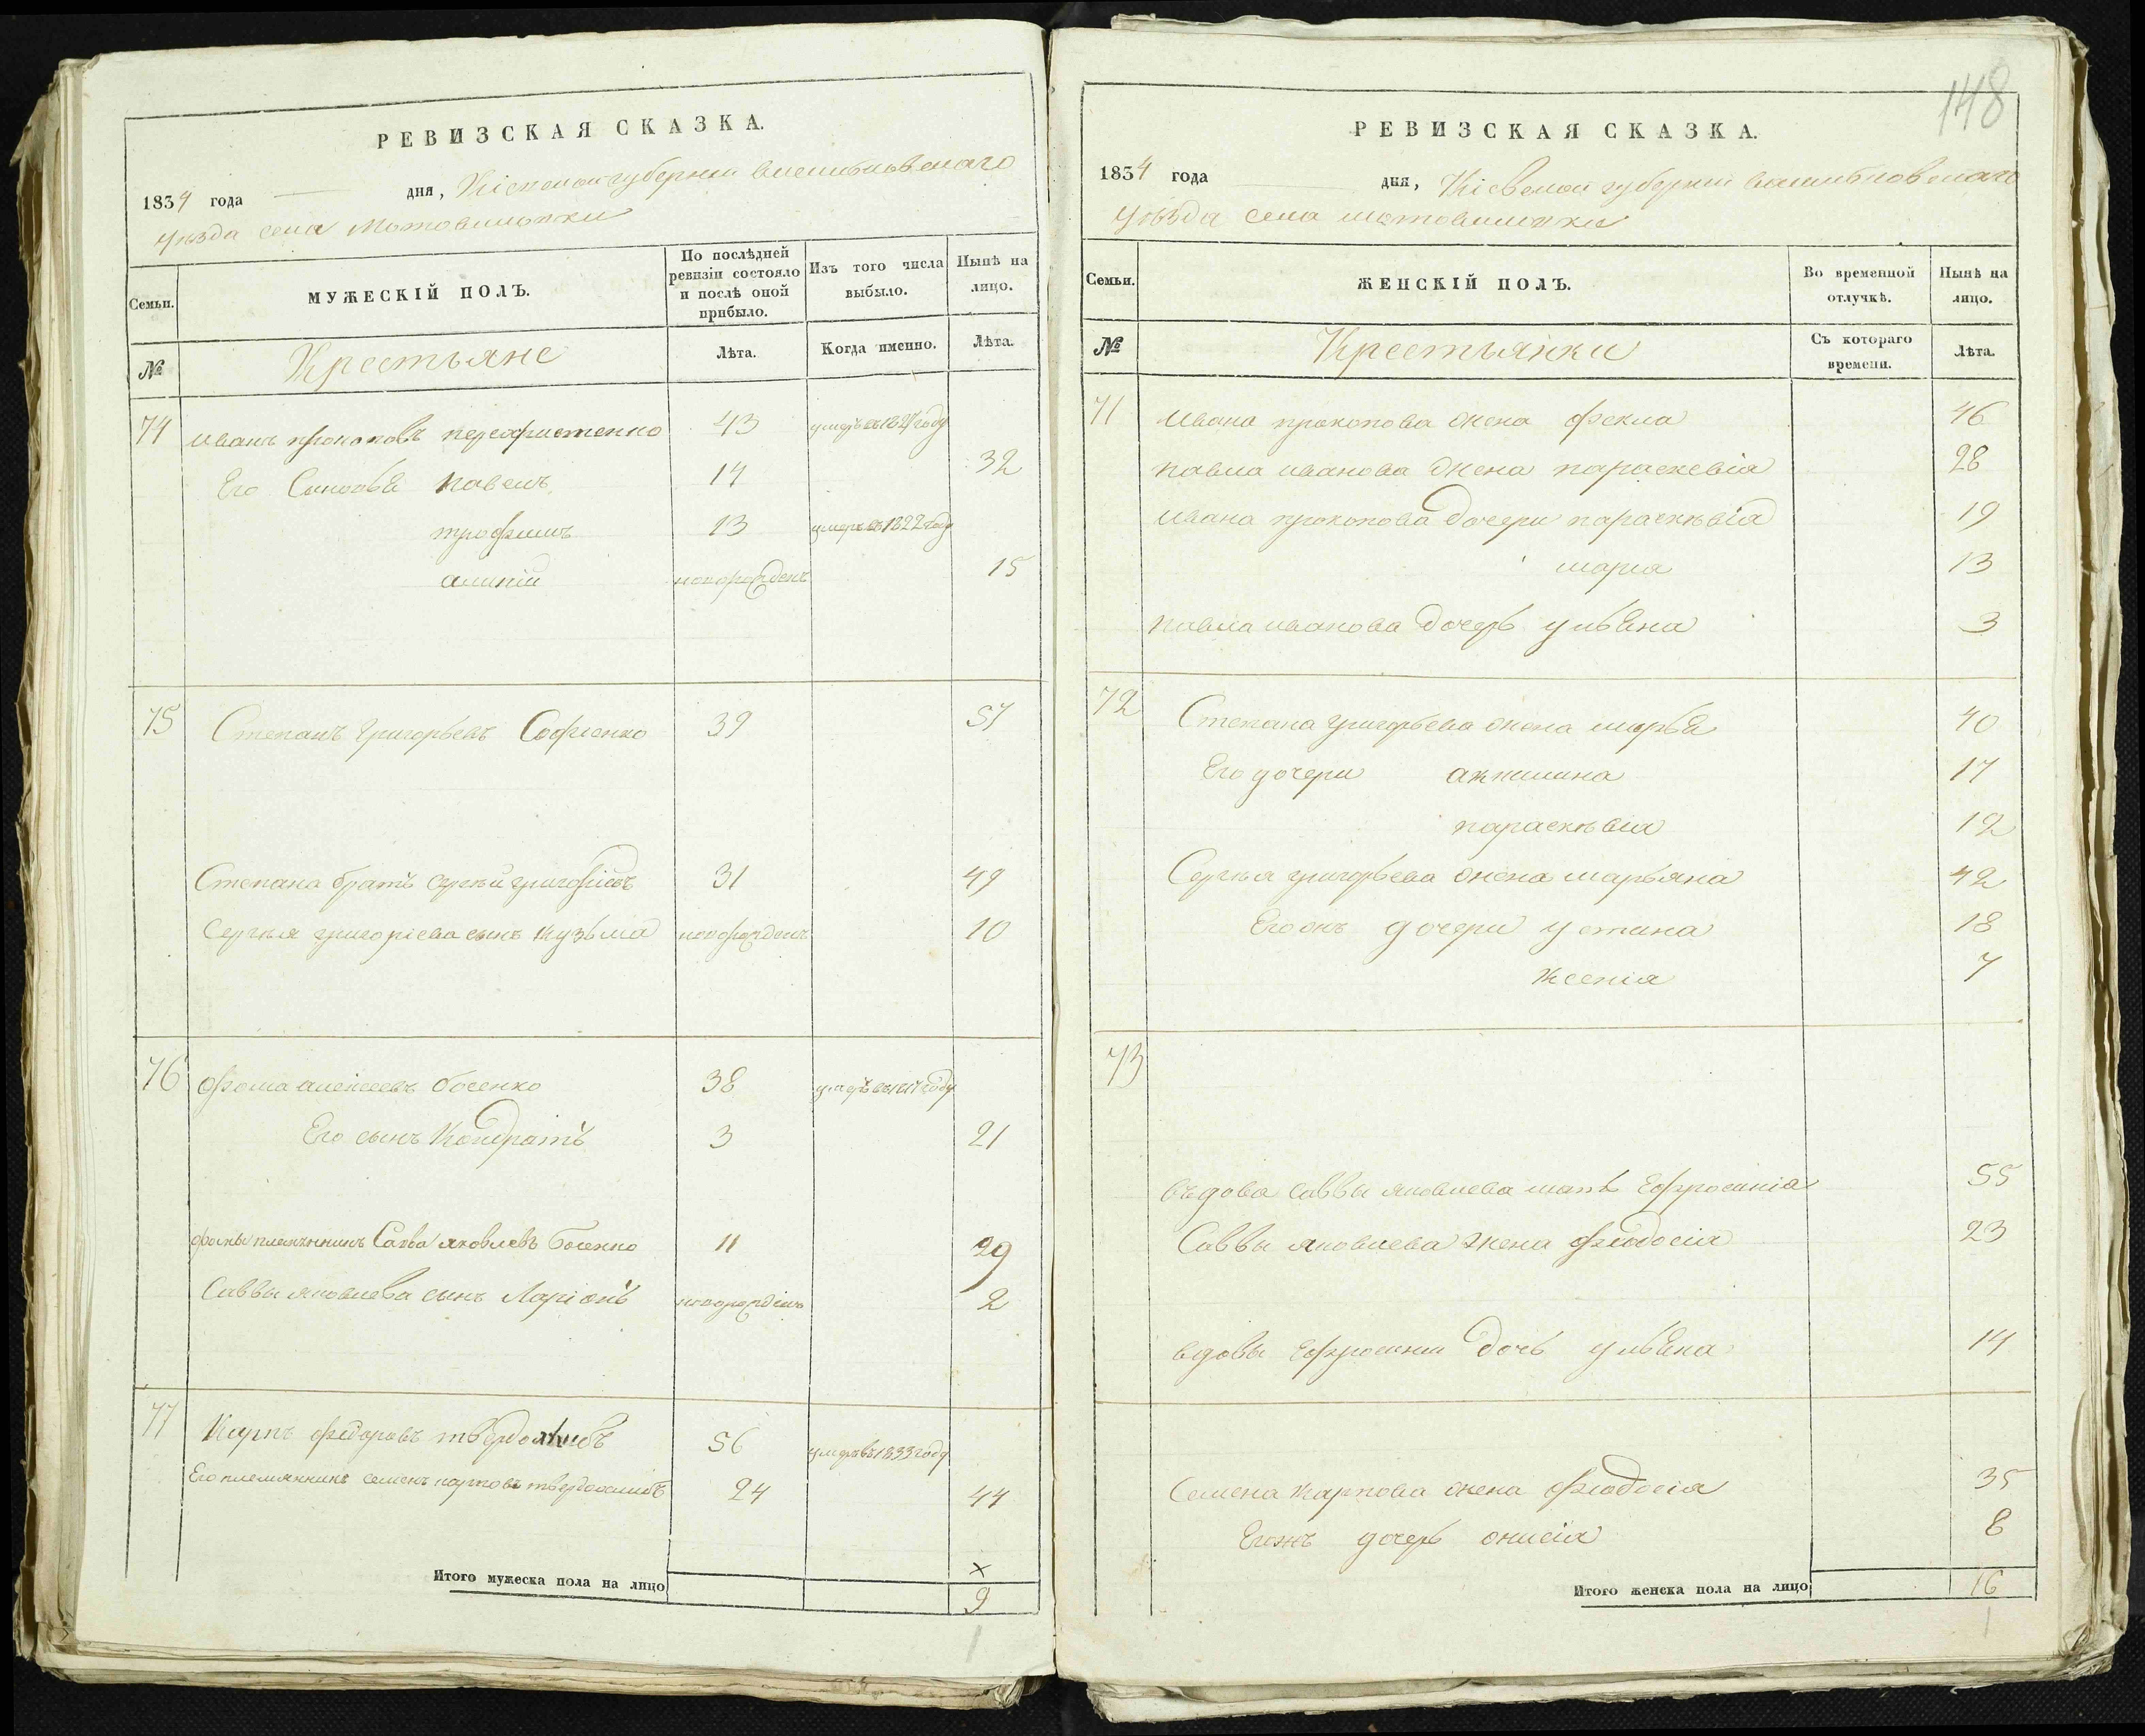 РЕВИЗСКАЯ СКАЗКА.
1834 года дня, Кіевской губерніи Васильковскаго
уѣзда села Мотовиловки
Семьи. МУЖЕСКІЙ ПОЛЪ. По послѣдней ревизіи состояло и послѣ оной прибыло. Изъ того числа выбыло. Нынѣ на лицо.
№ Крестьяне Лѣта. Когда именно. Лѣта.
74 Иванъ прокоповъ 43 умеръ въ году
Его Сыновья Павелъ 14 32
трофимъ 13 умеръ въ 1822 году
алипій новорожденъ 15
75 Степанъ Григорьевъ Софіенко 39 57
Степана братъ Сергѣй григорьевъ 31 49
Сергѣя григоріева сынъ Кузьма новорожденъ 10
76 Фома алексѣевъ босенко 38 умеръ въ году
Его сынъ Кондратъ 3 21
фомы племянникъ Савва яковлевъ Босенко 11 29
Саввы яковлева сынъ Ларіонъ новорожденъ 2
77 Карпъ федоровъ твердохлибъ 56 умеръ въ 1833 году
Его племянникъ семенъ карповъ твердохлибъ 24 44
Итого мужеска пола на лицо
×
9
148
РЕВИЗСКАЯ СКАЗКА.
1834 года дня, Кіевской губерніи Васильковскаго
уѣзда села мотовиловки
Семьи. ЖЕНСКІЙ ПОЛЪ. Во временной отлучкѣ. Нынѣ на лицо.
№ Крестьянки Съ котораго времени. Лѣта.
71 Ивана прокопова жена фекла 46
павла иванова жена параскевія 28
ивана прокопова дочери параскѣвія 19
марія 13
павла иванова дочерь ульяна 3
72 Степана григорьева жена марья 40
Его дочери акилина 17
параскѣвія 12
Сергѣя григорьева жена марьяна 42
Егожъ дочери устина 18
ксенія 7
73
въдова саввы яковлева мать Ефросинія 55
Саввы яковлева жена феодосія 23
вдовы Ефросиніи дочь ульяна 14
Семена карпова жена феодосія 35
Егожъ дочерь онисія 8
Итого женска пола на лицо 16